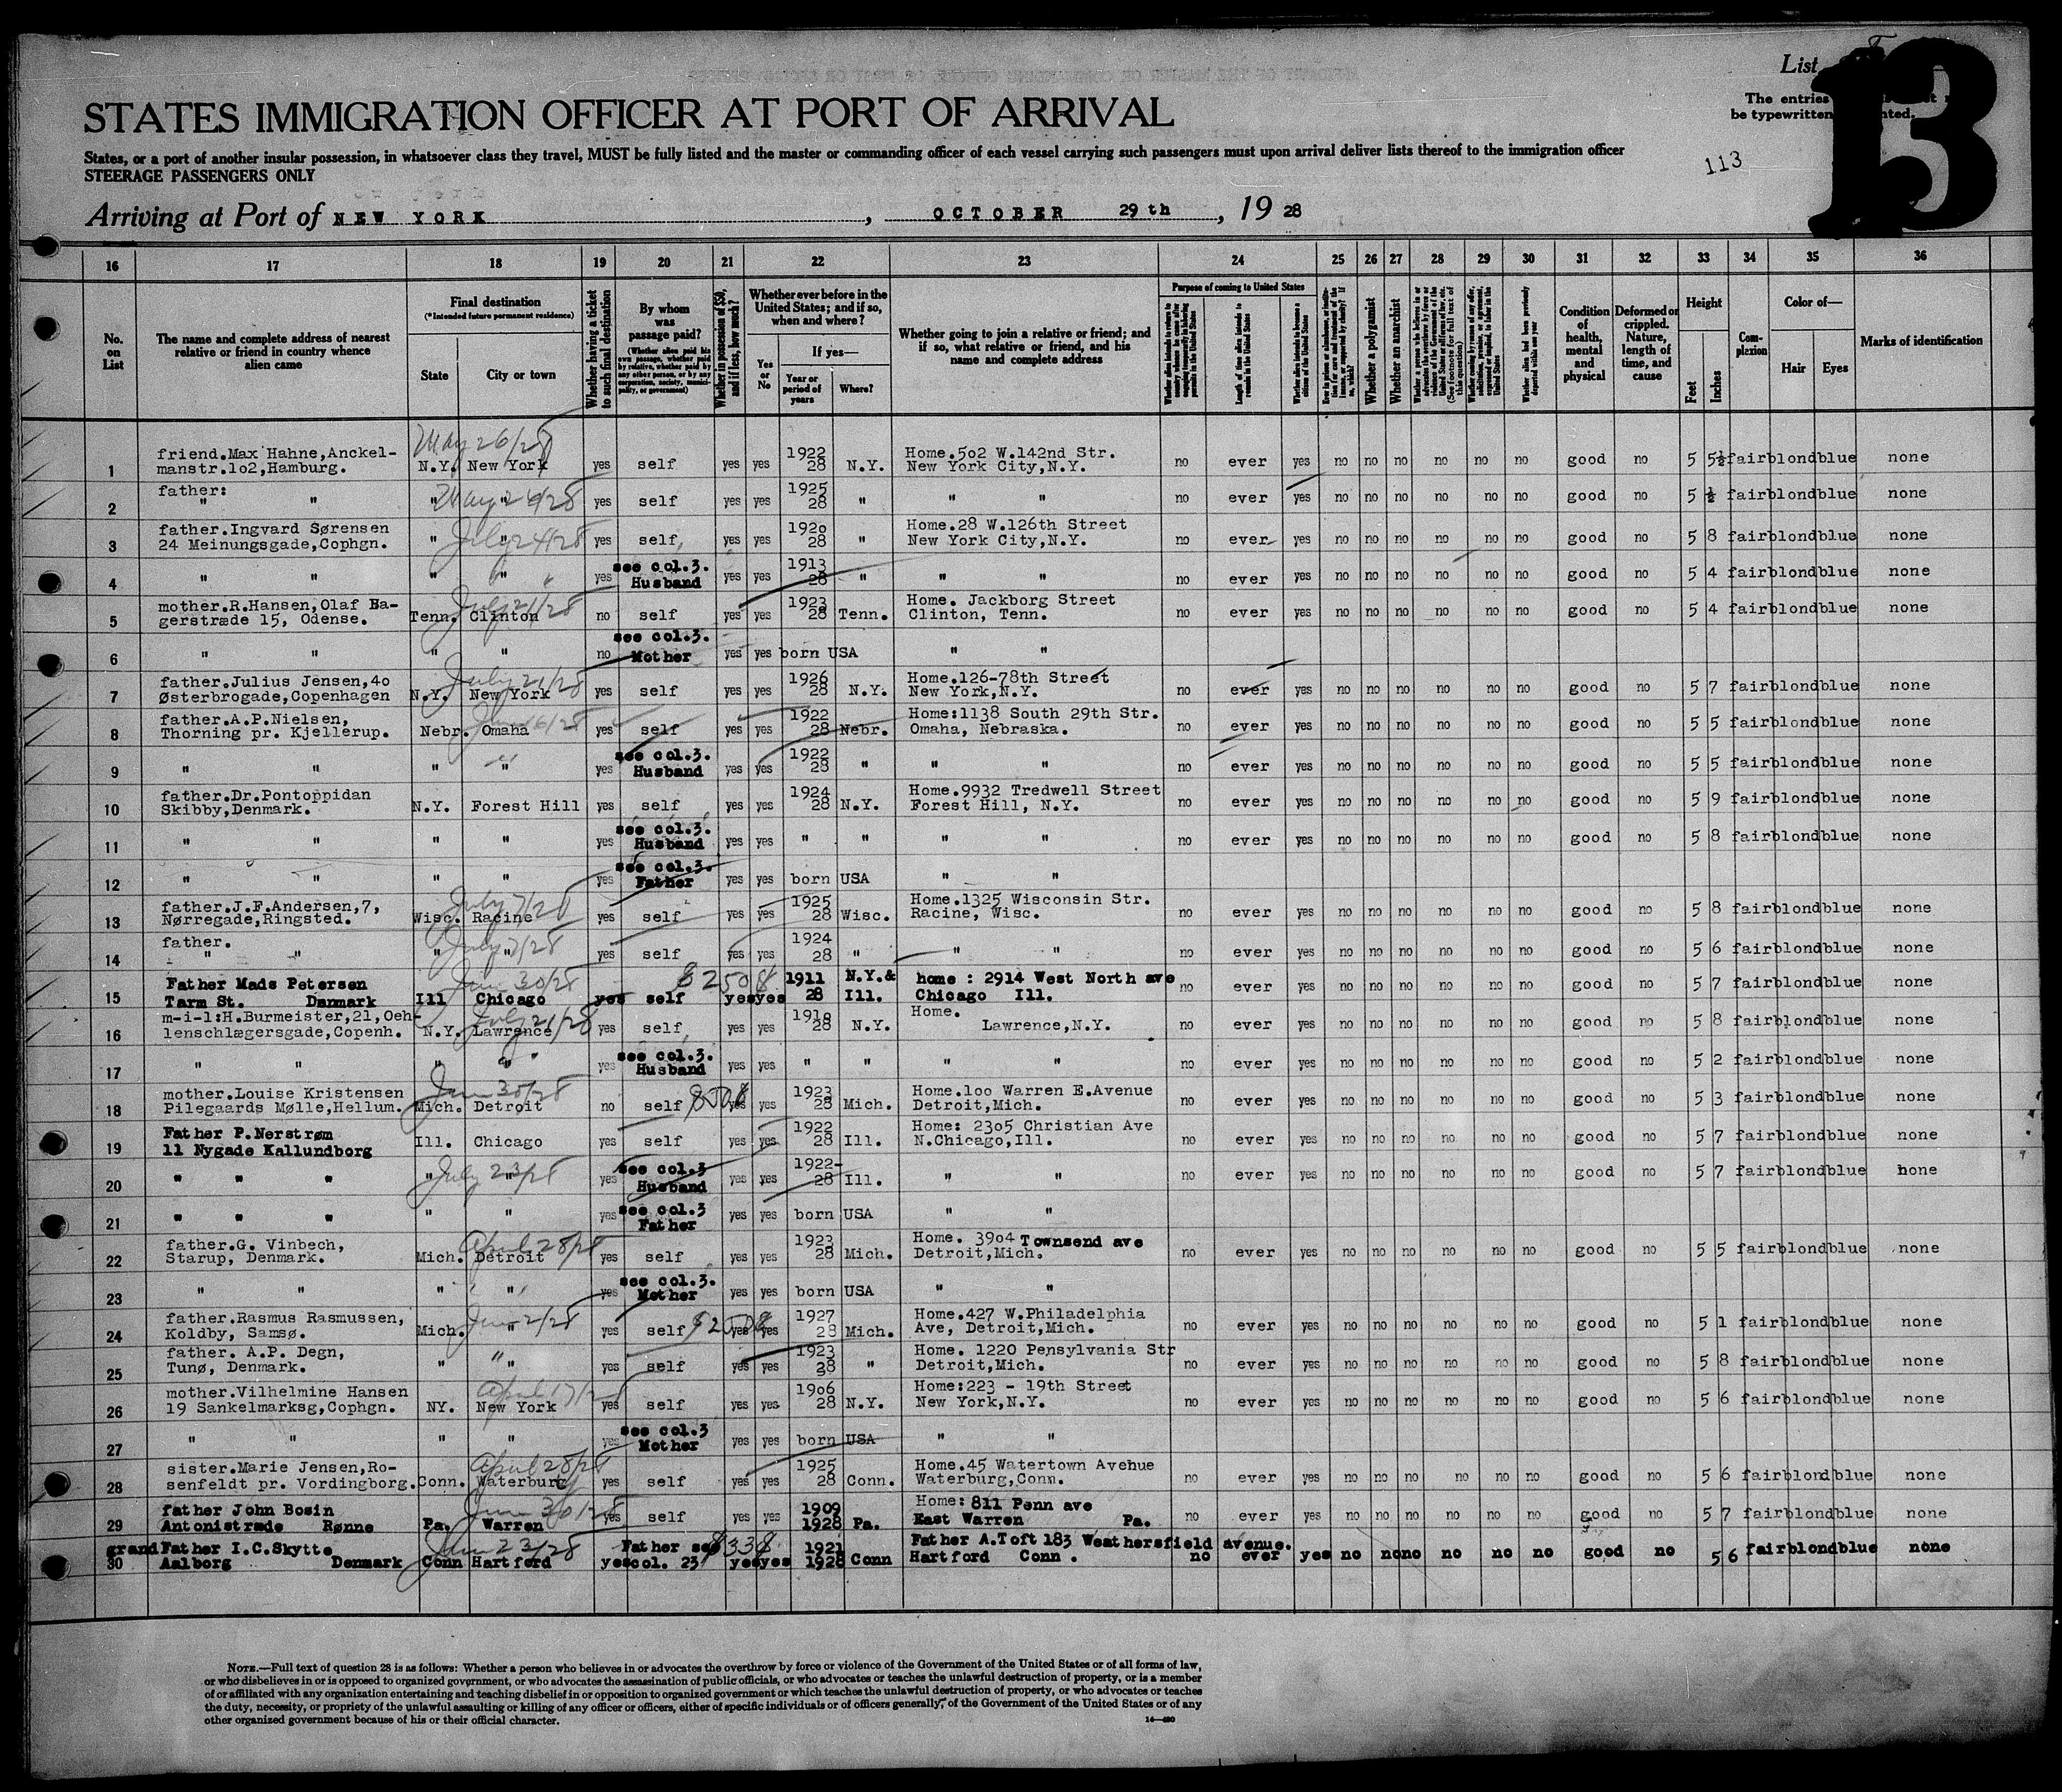 List
13
The entries
be typewritten
113
STATES IMMIGRATION OFFICER AT PORT OF ARRIVAL
States, or a port of another insular possession, in whatsoever class they travel, MUST be fully listed and the master or commanding officer of each vessel carrying such passengers must upon arrival deliver lists thereof to the immigration officer
STEERAGE PASSENGERS ONLY
Arriving at Port of NEW YORK, OCTOBER 29th, 19 28
16 17 18 19 20 21 22 23 24 25 26 27 28 29 30 31 32 33 34 35 36
No. on List
The name and complete address of nearest relative or friend in country whence alien came
Final destination
(*Intended future permanent residence)
State
City or town
Whether having a ticket to such final destination
By whom was passage paid?
(Whether alien paid his own passage, whether paid by relative, whether paid by any other person, or by any corporation, society, municipality, or government)
Whether in possession of $50, and if less, how much?
Whether ever before in the United States; and if so, when and where?
Yes or No
If yes—
Year or period of years
Where?
Whether going to join a relative or friend; and if so, what relative or friend, and his name and complete address
Purpose of coming to United States
Length of time alien intends to remain in the United States
Whether alien intends to become a citizen of the United States
Whether a polygamist
Whether an anarchist
Whether alien had been previously deported within one year
Condition of health, mental and physical
Deformed or crippled. Nature, length of time, and cause
Height
Feet
Inches
Complexion
Color of—
Hair
Eyes
Marks of identification
May 26/28
1 friend.Max Hahne,Anckel-manstr.1o2,Hamburg. N.Y. New York yes self yes yes 1922 28 N.Y. Home.5o2 W.142nd Str. New York City,N.Y. no ever yes no no no no no no good no 5 5½ fair blond blue none
2 father: " " " May 26/28 yes self yes yes 1925 28 " " " no ever yes no no no no no no good no 5 ½ fair blond blue none
3 father.Ingvard Sørensen 24 Meinungsgade,Cophgn. " " July 24/28 yes self, yes yes 192o 28 " Home.28 W.126th Street New York City,N.Y. no ever yes no no no no no no good no 5 8 fair blond blue none
4 " " " " yes see col.3. Husband yes yes 1913 28 " " " no ever yes no no no no no no good no 5 4 fair blond blue none
5 mother.R.Hansen,Olaf Ba-gerstræde 15, Odense. Tenn. Clinton July 21/28 no self yes yes 1923 28 Tenn. Home. Jackborg Street Clinton, Tenn. no ever yes no no no no no no good no 5 4 fair blond blue none
6 " " " " no see col.3. Mother yes yes born USA " "
7 father.Julius Jensen,4o Østerbrogade,Copenhagen N.Y. New York July 21/28 yes self yes yes 1926 28 N.Y. Home.126-78th Street New York,N.Y. no ever yes no no no no no no good no 5 7 fair blond blue none
8 father.A.P.Nielsen, Thorning pr. Kjellerup. Nebr. Omaha yes self yes yes 1922 28 Nebr. Home:1138 South 29th Str. Omaha, Nebraska. no ever yes no no no no no no good no 5 5 fair blond blue none
9 " " " " yes see col.3. Husband yes yes 1922 28 " " " no ever yes no no no no no no good no 5 5 fair blond blue none
10 father.Dr.Pontoppidan Skibby,Denmark. N.Y. Forest Hill yes self yes yes 1924 28 N.Y. Home.9932 Tredwell Street Forest Hill, N.Y. no ever yes no no no no no no good no 5 9 fair blond blue none
11 " " " " yes see col.3. Husband yes yes " " " " no ever yes no no no no no no good no 5 8 fair blond blue none
12 " " " " yes see col.3. Father yes yes born USA " "
13 father.J.F.Andersen,7, Nørregade,Ringsted. Wisc. Racine July 7/28 yes self yes yes 1925 28 Wisc. Home.1325 Wisconsin Str. Racine, Wisc. no ever yes no no no no no no good no 5 8 fair blond blue none
14 father. " " " " July 7/28 yes self yes yes 1924 28 " " " no ever yes no no no no no no good no 5 6 fair blond blue none
15 Father Mads Petersen Tarm St. Danmark Ill Chicago June 30/28 yes self yes yes 1911 28 N.Y.& Ill. home : 2914 West North ave Chicago Ill. no ever yes no no no no no no good no 5 7 fair blond blue none
16 m-i-l:H.Burmeister,21,Oeh-lenschlægersgade,Copenh. N.Y. Lawrence July 21/28 yes self yes yes 191o 28 N.Y. Home. Lawrence,N.Y. no ever yes no no no no no no good no 5 8 fair blond blue none
17 " " " " yes see col.3. Husband yes yes " " " " no ever yes no no no no no no good no 5 2 fair blond blue none
18 mother.Louise Kristensen Pilegaards Mølle,Hellum. Mich. Detroit June 30/28 no self yes yes 1923 28 Mich. Home.1oo Warren E.Avenue Detroit,Mich. no ever yes no no no no no no good no 5 3 fair blond blue none
19 Father P.Nerstrøm 11 Nygade Kallundborg Ill. Chicago yes self yes yes 1922 28 Ill. Home: 23o5 Christian Ave N.Chicago,Ill. no ever yes no no no no no no good no 5 7 fair blond blue none
20 " " " " " July 23/28 yes see col.3 Husband yes yes 1922- 28 Ill. " " no ever yes no no no no no no good no 5 7 fair blond blue none
21 " " " " " yes see col.3 Father yes yes born USA " "
22 father.G. Vinbech, Starup, Denmark. Mich. Detroit April 28/28 yes self yes yes 1923 28 Mich. Home. 39o4 Townsend ave Detroit,Mich. no ever yes no no no no no no good no 5 5 fair blond blue none
23 " " " " yes see col.3. Mother yes yes born USA " "
24 father.Rasmus Rasmussen, Koldby, Samsø. Mich. " June 2/28 yes self yes yes 1927 28 Mich. Home.427 W.Philadelphia Ave, Detroit,Mich. no ever yes no no no no no no good no 5 1 fair blond blue none
25 father. A.P. Degn, Tunø, Denmark. " " yes self yes yes 1923 28 " Home. 1220 Pensylvania Str Detroit,Mich. no ever yes no no no no no no good no 5 8 fair blond blue none
26 mother.Vilhelmine Hansen 19 Sankelmarksg,Cophgn. NY. New York April 17/28 yes self yes yes 19o6 28 N.Y. Home:223 - 19th Street New York,N.Y. no ever yes no no no no no no good no 5 6 fair blond blue none
27 " " " " yes see col.3 Mother yes yes born USA " "
28 sister.Marie Jensen,Ro-senfeldt pr. Vordingborg. Conn. Waterburg April 28/28 yes self yes yes 1925 28 Conn. Home.45 Watertown Avenue Waterburg,Conn. no ever yes no no no no no no good no 5 6 fair blond blue none
29 father John Bosin Antonistræde Rønne Pa. Warren June 30/28 yes self yes yes 1909 1928 Pa. Home: 811 Penn ave East Warren Pa. no ever yes no no no no no no good no 5 7 fair blond blue none
30 grand Father I.C.Skytte Aalborg Denmark Conn Hartford June 23/28 yes Father see col. 23 yes yes 1921 1928 Conn Father A.Toft 183 Weathersfield avenue. Hartford Conn . no ever yes no no no no no no good no 5 6 fair blond blue none
NOTE.—Full text of question 28 is as follows: Whether a person who believes in or advocates the overthrow by force or violence of the Government of the United States or of all forms of law,
or who disbelieves in or is opposed to organized government, or who advocates the assassination of public officials, or who advocates or teaches the unlawful destruction of property, or is a member
of or affiliated with any organization entertaining and teaching disbelief in or opposition to organized government or which teaches the unlawful destruction of property, or who advocates or teaches
the duty, necessity, or propriety of the unlawful assaulting or killing of any officer or officers, either of specific individuals or of officers generally, of the Government of the United States or of any
other organized government because of his or their official character.